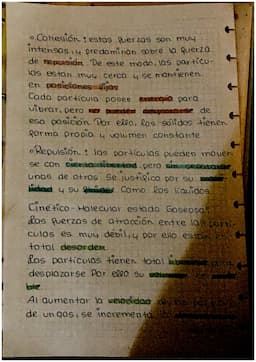 o Cohesión: estas fuerzas son muy
intensas, y predominan sobre la fuerza
de repulsión. De este modo, las partícu-
las están muy cerca y se mantienen
en posiciones fijas
Cada partícula posee energía para
vibrar, pero no puede desplazarse de
esa posición. Por ello, los sólidos tienen
forma propia y volumen constante
o Repulsión: las partículas pueden mover-
se con cierta libertad pero sin separarse
unas de otras. Se justifica por su
y su Como los líquidos
Cinético-Molecular estado Gaseoso:
Las fuerzas de atracción entre las partí-
culas es muy débil, y por ello están en
total desorden
Las partículas tienen total libertad para
desplazarse Por ello su
ble
Al aumentar la velocidad de las partículas
de un gas, se incrementa